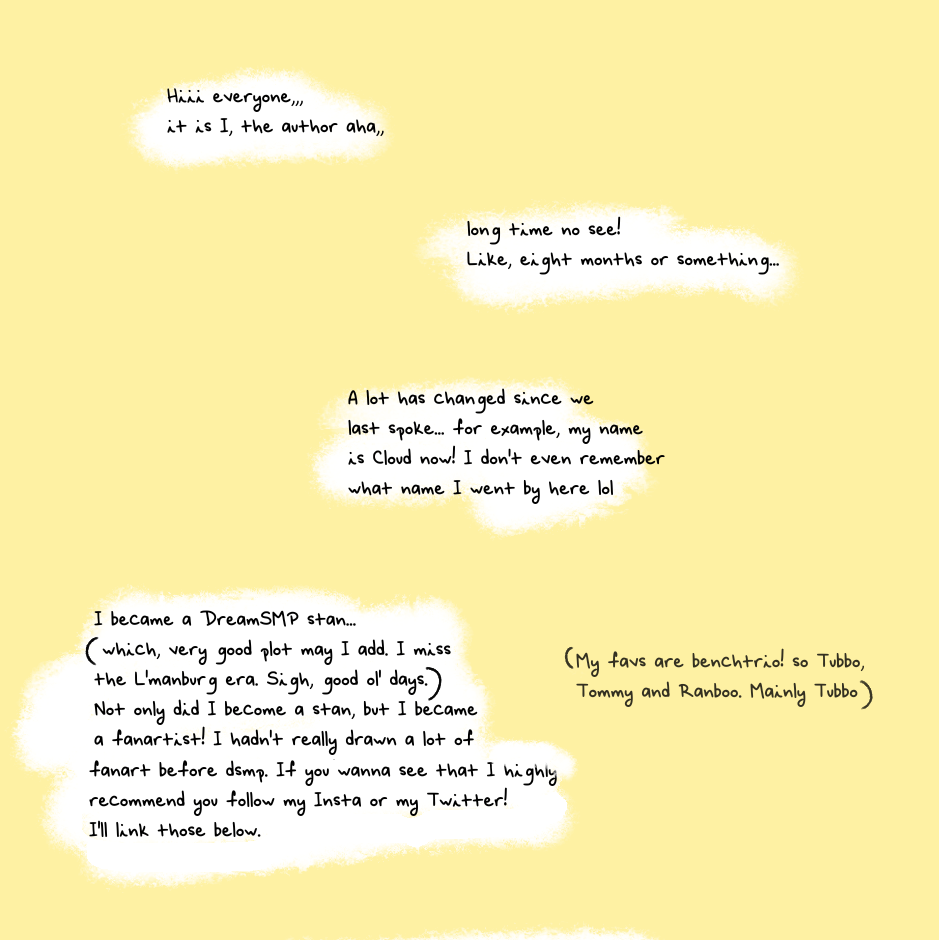 Hiii everyone,,,
it is I, the author aha,,
long time no see!
Like, eight months or something...
A lot has changed since we
last spoke... for example, my name
is Cloud now! I don't even remember
what name I went by here lol
I became a DreamSMP stan...
(which, very good plot may I add. I miss
the L'manburg era. Sigh, good ol' days.)
Not only did I become a stan, but I became
a fanartist! I hadn't really drawn a lot of
fanart before dsmp. If you wanna see that I highly
recommend you follow my Insta or my Twitter!
I'll link those below.
(My favs are benchtrio! so Tubbo,
Tommy and Ranboo. Mainly Tubbo)